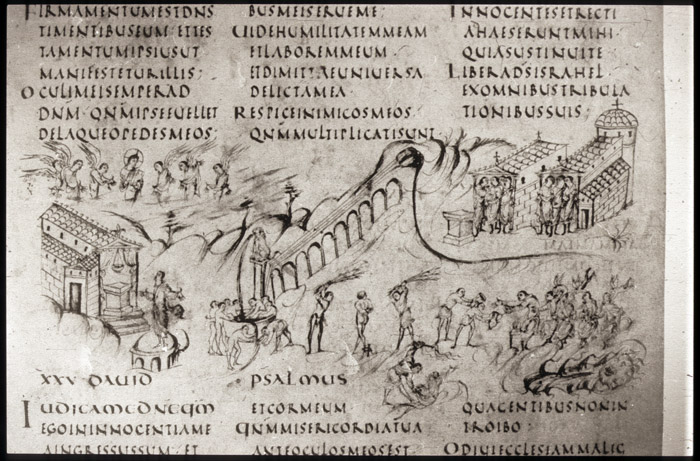 FIRMAMENTUMESTDNS
TIMENTIBUSEUM ETTES
TAMENTUMIPSIUSUT
MANIFESTETURILLIS·
OCULIMEISEMPERAD
DNM· QNMIPSEEUELLET
DELAQUEOPEDESMEOS;
BUSMEISERUEME·
UIDEHUMILITATEMMEAM
ETLABOREMMEUM·
ETDIMITTEUNIUERSA
DELICTAMEA·
RESPICEINIMICOSMEOS
QNMMULTIPLICATISUNT
INNOCENTESETRECTI
AHAESERUNTMIHI·
QUIASUSTINUITE
LIBERADSISRAHEL
EXOMNIBUSTRIBULA
TIONIBUSSUIS;
XXV·DAUID PSALMUS
IUDICAMEDNEQNM
EGOININNOCENTIAME
AINGRESSUSSUM·ET
ETCORMEUM·
QNMMISERICORDIATUA
ANTEOCULOSMEOSEST
QUAGENTIBUSNONIN
TROIBO·
ODIUIECCLESIAMMALIG